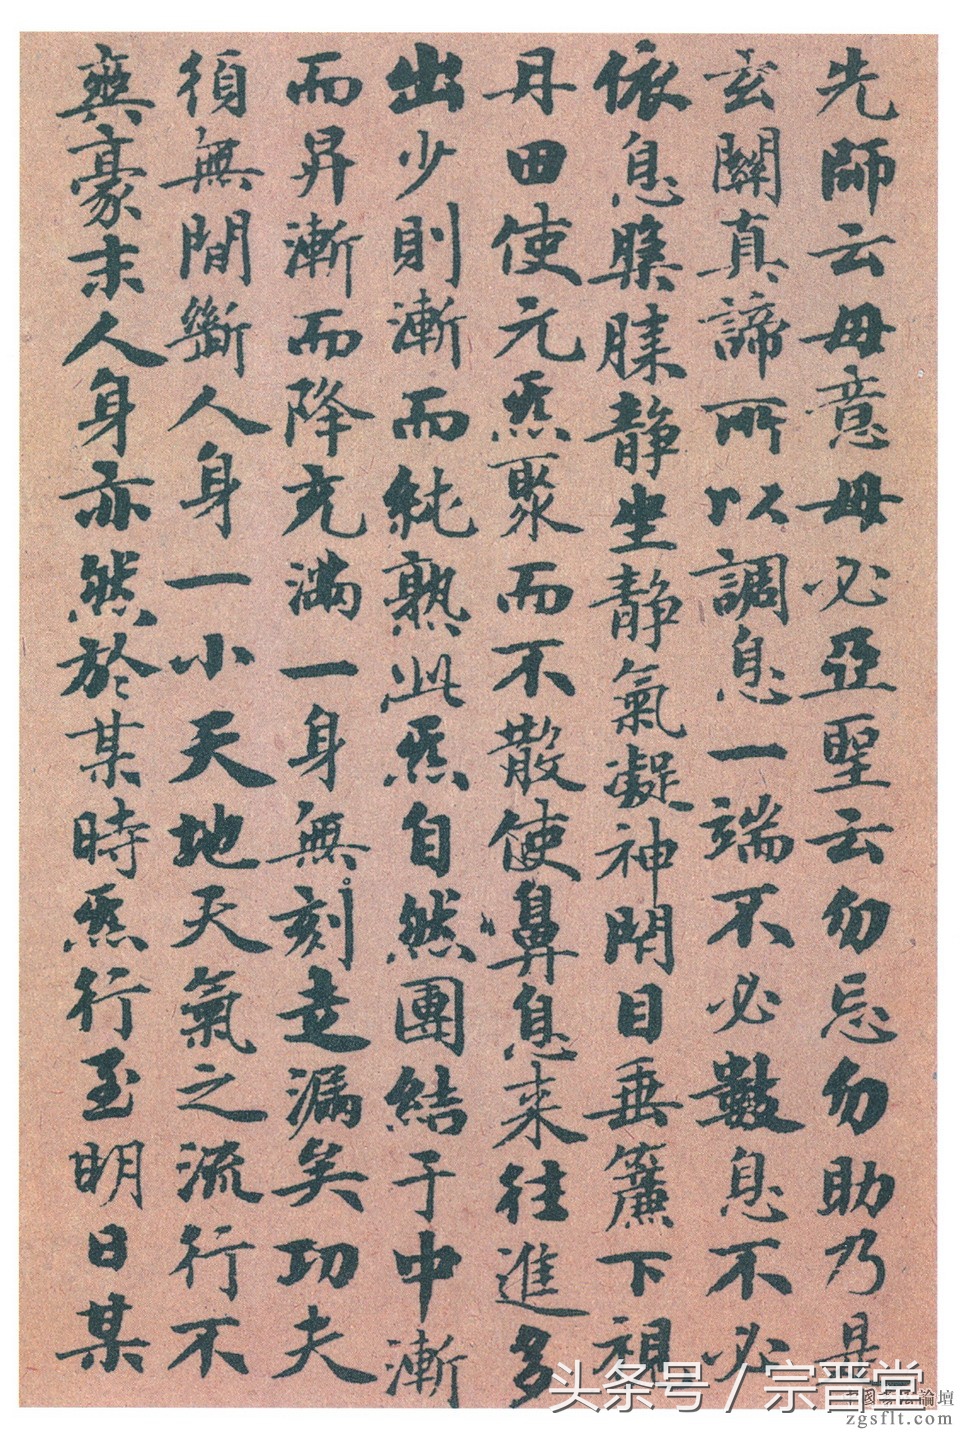 先師云毋意毋必亞聖云勿忘勿助乃是
玄關真諦所以調息一端不必數息不必
依息膝靜坐靜氣凝神閉目垂簾下視
丹田使元炁聚而不散使鼻息來往進多
出少則漸而純熟此炁自然團結于中漸
而昇漸而降充滿一身無刻走漏矣功夫
須無間斷人身一小天地天氣之流行不
爽豪末人身亦然於某時炁行至明日某
头条号 / 宗晋堂
zgsflt.com